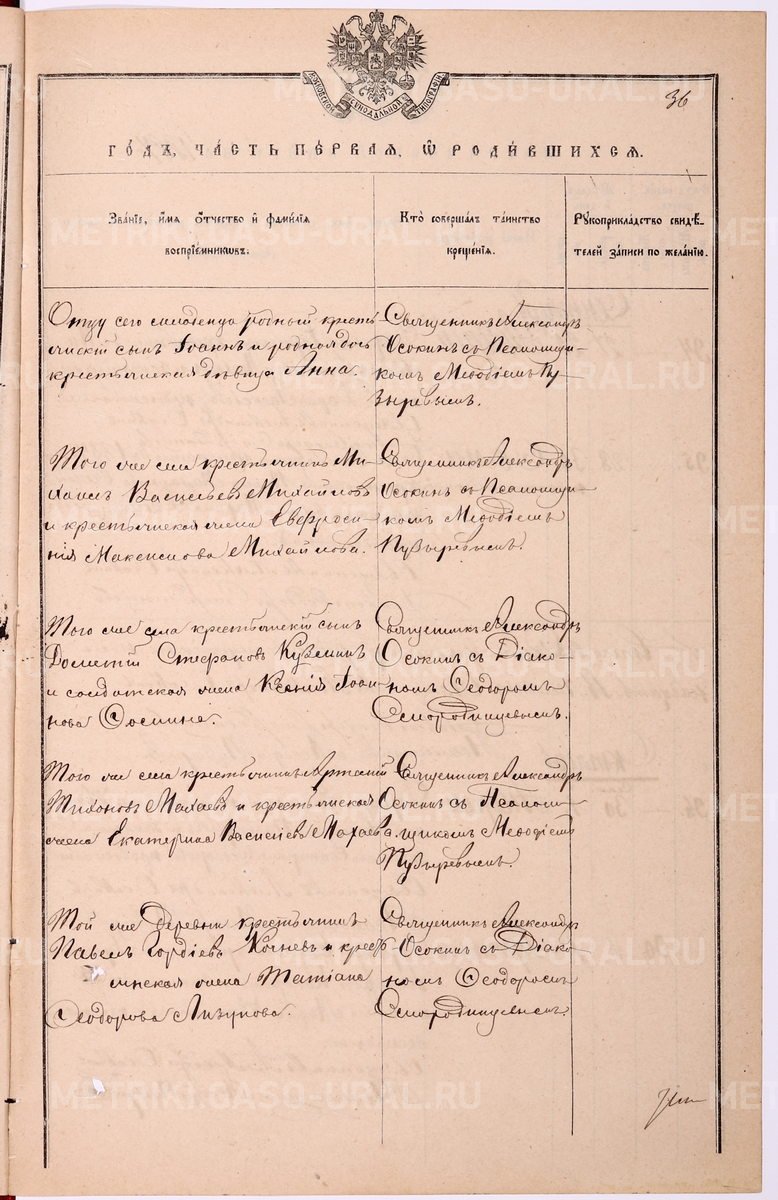 МОСКОВСКОЙ СѴНОДАЛЬНОЙ ТИПОГРАФІИ
36
ГО́ДЪ, ЧА́СТЬ ПЕ́РВАЯ, Ѡ҆ РОДИ́ВШИХСѦ.
Зва́нїе, и҆́мѧ ѻ҆́тчество и҆ фами́лїѧ
воспрїе́мниковъ.
Кто̀ соверша́лъ та́инство
креще́нїѧ.
Рꙋкоприкла́дство свидѣ́-
телей за́писи по жела́нїю.
Отцу сего младенца родный кресть-
янскій сынъ Іоаннъ и родная дочь
крестьянская дѣвица Анна.
Священникъ Александръ
Осокинъ съ Псаломщи-
комъ Меѳодіемъ Пу-
зыревымъ.
Того же села крестьянинъ Ми-
хаилъ Васильевъ Михайловъ
и крестьянская жена Евфроси-
нія Максимова Михайлова.
Священникъ Александръ
Осокинъ съ Псаломщи-
комъ Меѳодіемъ
Пузыревымъ.
Того же села крестьянскій сынъ
Дометій Стефановъ Кузминъ
и солдатская жена Ксенія Іоан-
нова
Священникъ Александръ
Осокинъ съ Діако-
номъ Ѳеодоромъ
Смородинцевымъ.
Того же села крестьянинъ Артемій
Тихоновъ Махаевъ и крестьянская
жена Екатерина Васильева Махаева.
Священникъ Александръ
Осокинъ съ Псалом-
щикомъ Меѳодіемъ
Пузыревымъ.
Той же деревни крестьянинъ
Павелъ Гордіевъ Кочневъ и крестья-
нская жена Татіана
Ѳеодорова Лизунова.
Священникъ Александръ
Осокинъ съ Діако-
номъ Ѳеодоромъ
Смородинцевымъ.
METRIKI.GASO-URAL.RU